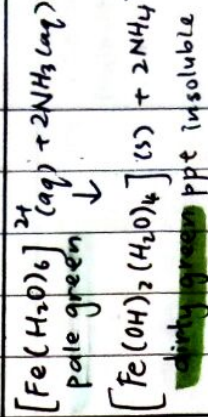 [Fe(H₂O)₆]²⁺(aq) + 2NH₃(aq)
pale green ↓
[Fe(OH)₂(H₂O)₄](s) + 2NH₄
dirty green ppt insoluble